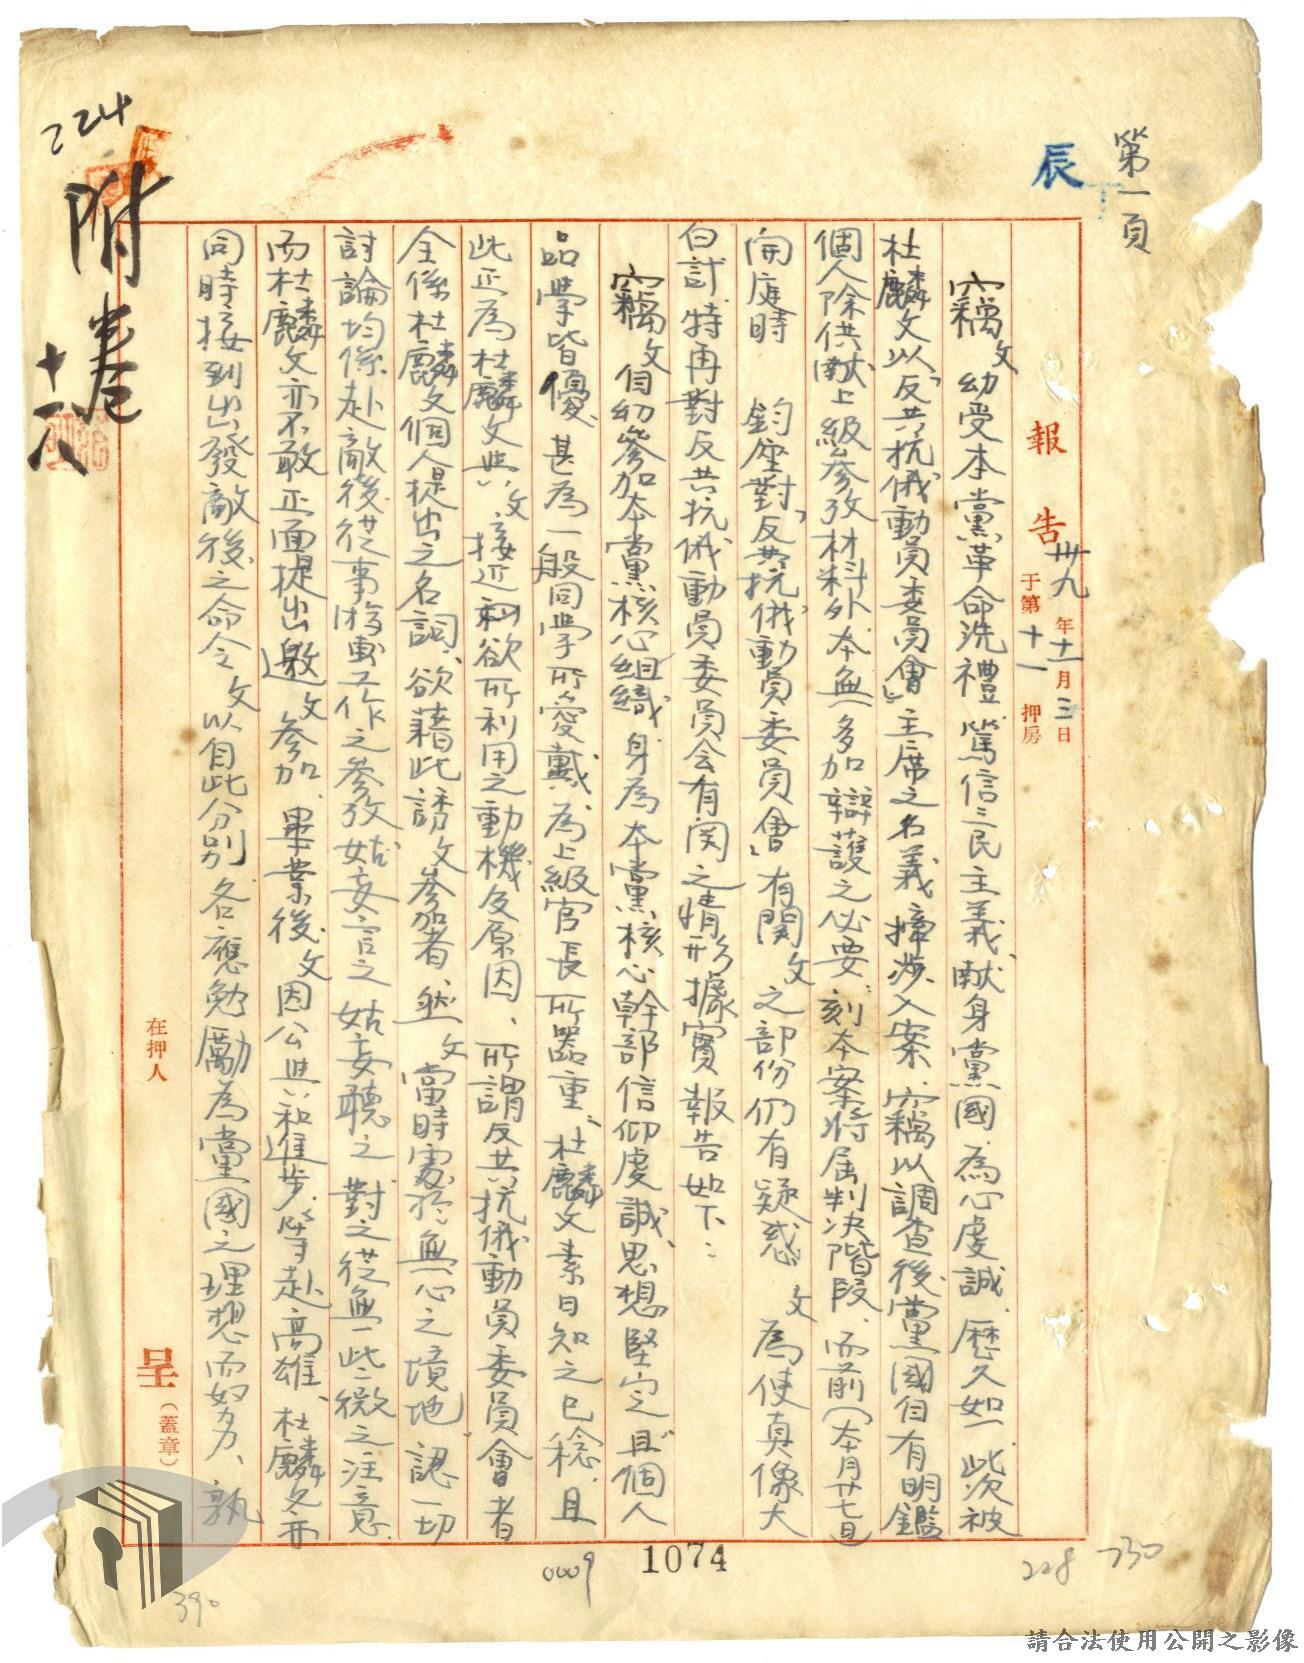 第一頁
辰
報告
卅九年十一月三日
于第十一押房
竊文幼受本黨革命洗禮、篤信三民主義、献身黨國、為心虔誠、歷久如一、此次被
杜麟文以「反共抗俄動員委員會」主席之名義牽涉入案、竊以調查後、黨國自有明鑑
個人除供献上級参攷材料外、本無多加辯護之必要、刻本案將屆判决階段、而前(本月廿七日
開庭時　鈞座對「反共抗俄動員委員會」有関文之部份仍有疑惑、文為使真像大
白計、特再對反共抗俄動員委員会有関之情形據實報告如下：
竊文自幼參加本黨核心組織、身為本黨核心幹部信仰虔誠、思想堅定、且個人
品學皆優、甚為一般同學所愛戴、為上級官長所器重、杜麟文素日知之已稔、且
此正為杜麟文與文接近和欲所利用之動機及原因、所謂反共抗俄動員委員會者
全係杜麟文個人提出之名詞、欲藉此誘文參加者、然文當時處於無心之境地、認一切
討論均係赴敵後從事游击工作之參攷、姑妄言之姑妄聽之、對之從無一些微之注意
而杜麟文亦不敢正面提出邀文參加、畢業後、文因公與和進步等赴高雄、杜麟文亦
同時接到出發敵後之命令、文以自此分別、各應勉勵為黨國之理想而努力、孰
在押人
呈(蓋章)
224
附卷
十一八
390
0009
1074
228
230
請合法使用公開之影像